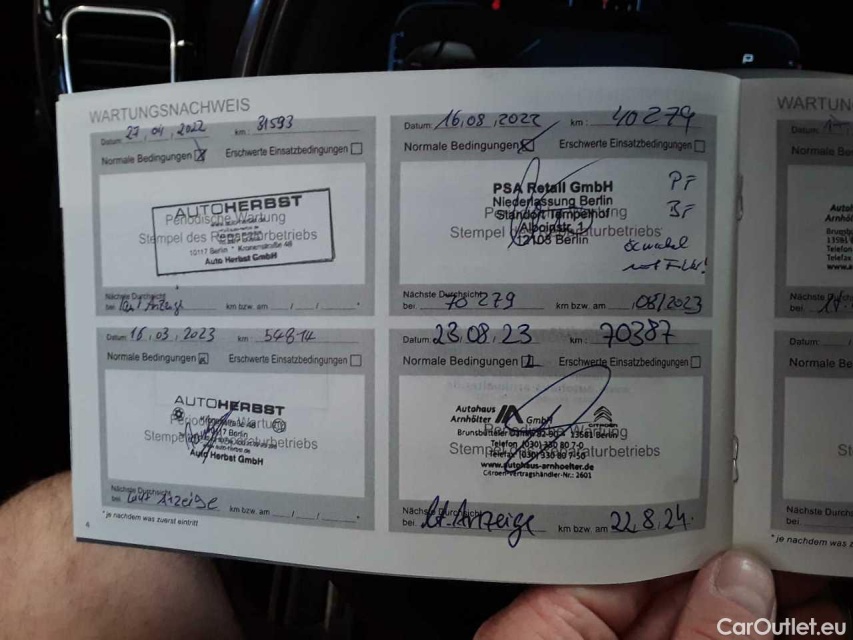 P
WARTUNGSNACHWEIS
Datum: 27,04,2022 km: 31593
Normale Bedingungen Erschwerte Einsatzbedingungen
AUTOHERBST
Periodische Wartung
Stempel des Reparaturbetriebs
10117 Berlin * Kronenstraße 48
Auto Herbst GmbH
Nächste Durchsicht
bei: Anzeige km bzw. am / /
Datum: 16,08,2022 km: 40279
Normale Bedingungen Erschwerte Einsatzbedingungen
PSA Retail GmbH
Niederlassung Berlin
Standort Tempelhof
Alboinstr. 1
12105 Berlin
Stempel des Reparaturbetriebs
PF
BF
Nächste Durchsicht
bei: 70279 km bzw. am 08/2023
Datum: 16,03,2023 km: 54814
Normale Bedingungen Erschwerte Einsatzbedingungen
AUTOHERBST
Periodische Wartung
Stempel des Reparaturbetriebs
Berlin
Auto Herbst GmbH
Nächste Durchsicht
bei: laut Anzeige km bzw. am / /
Datum: 23.08.23 km: 70387
Normale Bedingungen Erschwerte Einsatzbedingungen
Autohaus
Arnhölter GmbH
CITROËN
Brunsbütteler Damm 13581 Berlin
Periodische Wartung
Telefon (030) 330 80 7-0
Stempel des Reparaturbetriebs
Telefax (030) 330 80 7-50
www.autohaus-arnhoelter.de
Citroën-Vertragshändler-Nr.: 2601
Nächste Durchsicht
bei: lt. Anzeige km bzw. am 22.8.24.
4
* je nachdem was zuerst eintritt
WARTUN
Datum:
Normale Be
Stempe
Nächste Durchs
bei:
Datum:
Normale Bedin
Ste
Nächste Durch
bei:
* je nachdem was z
CarOutlet.eu